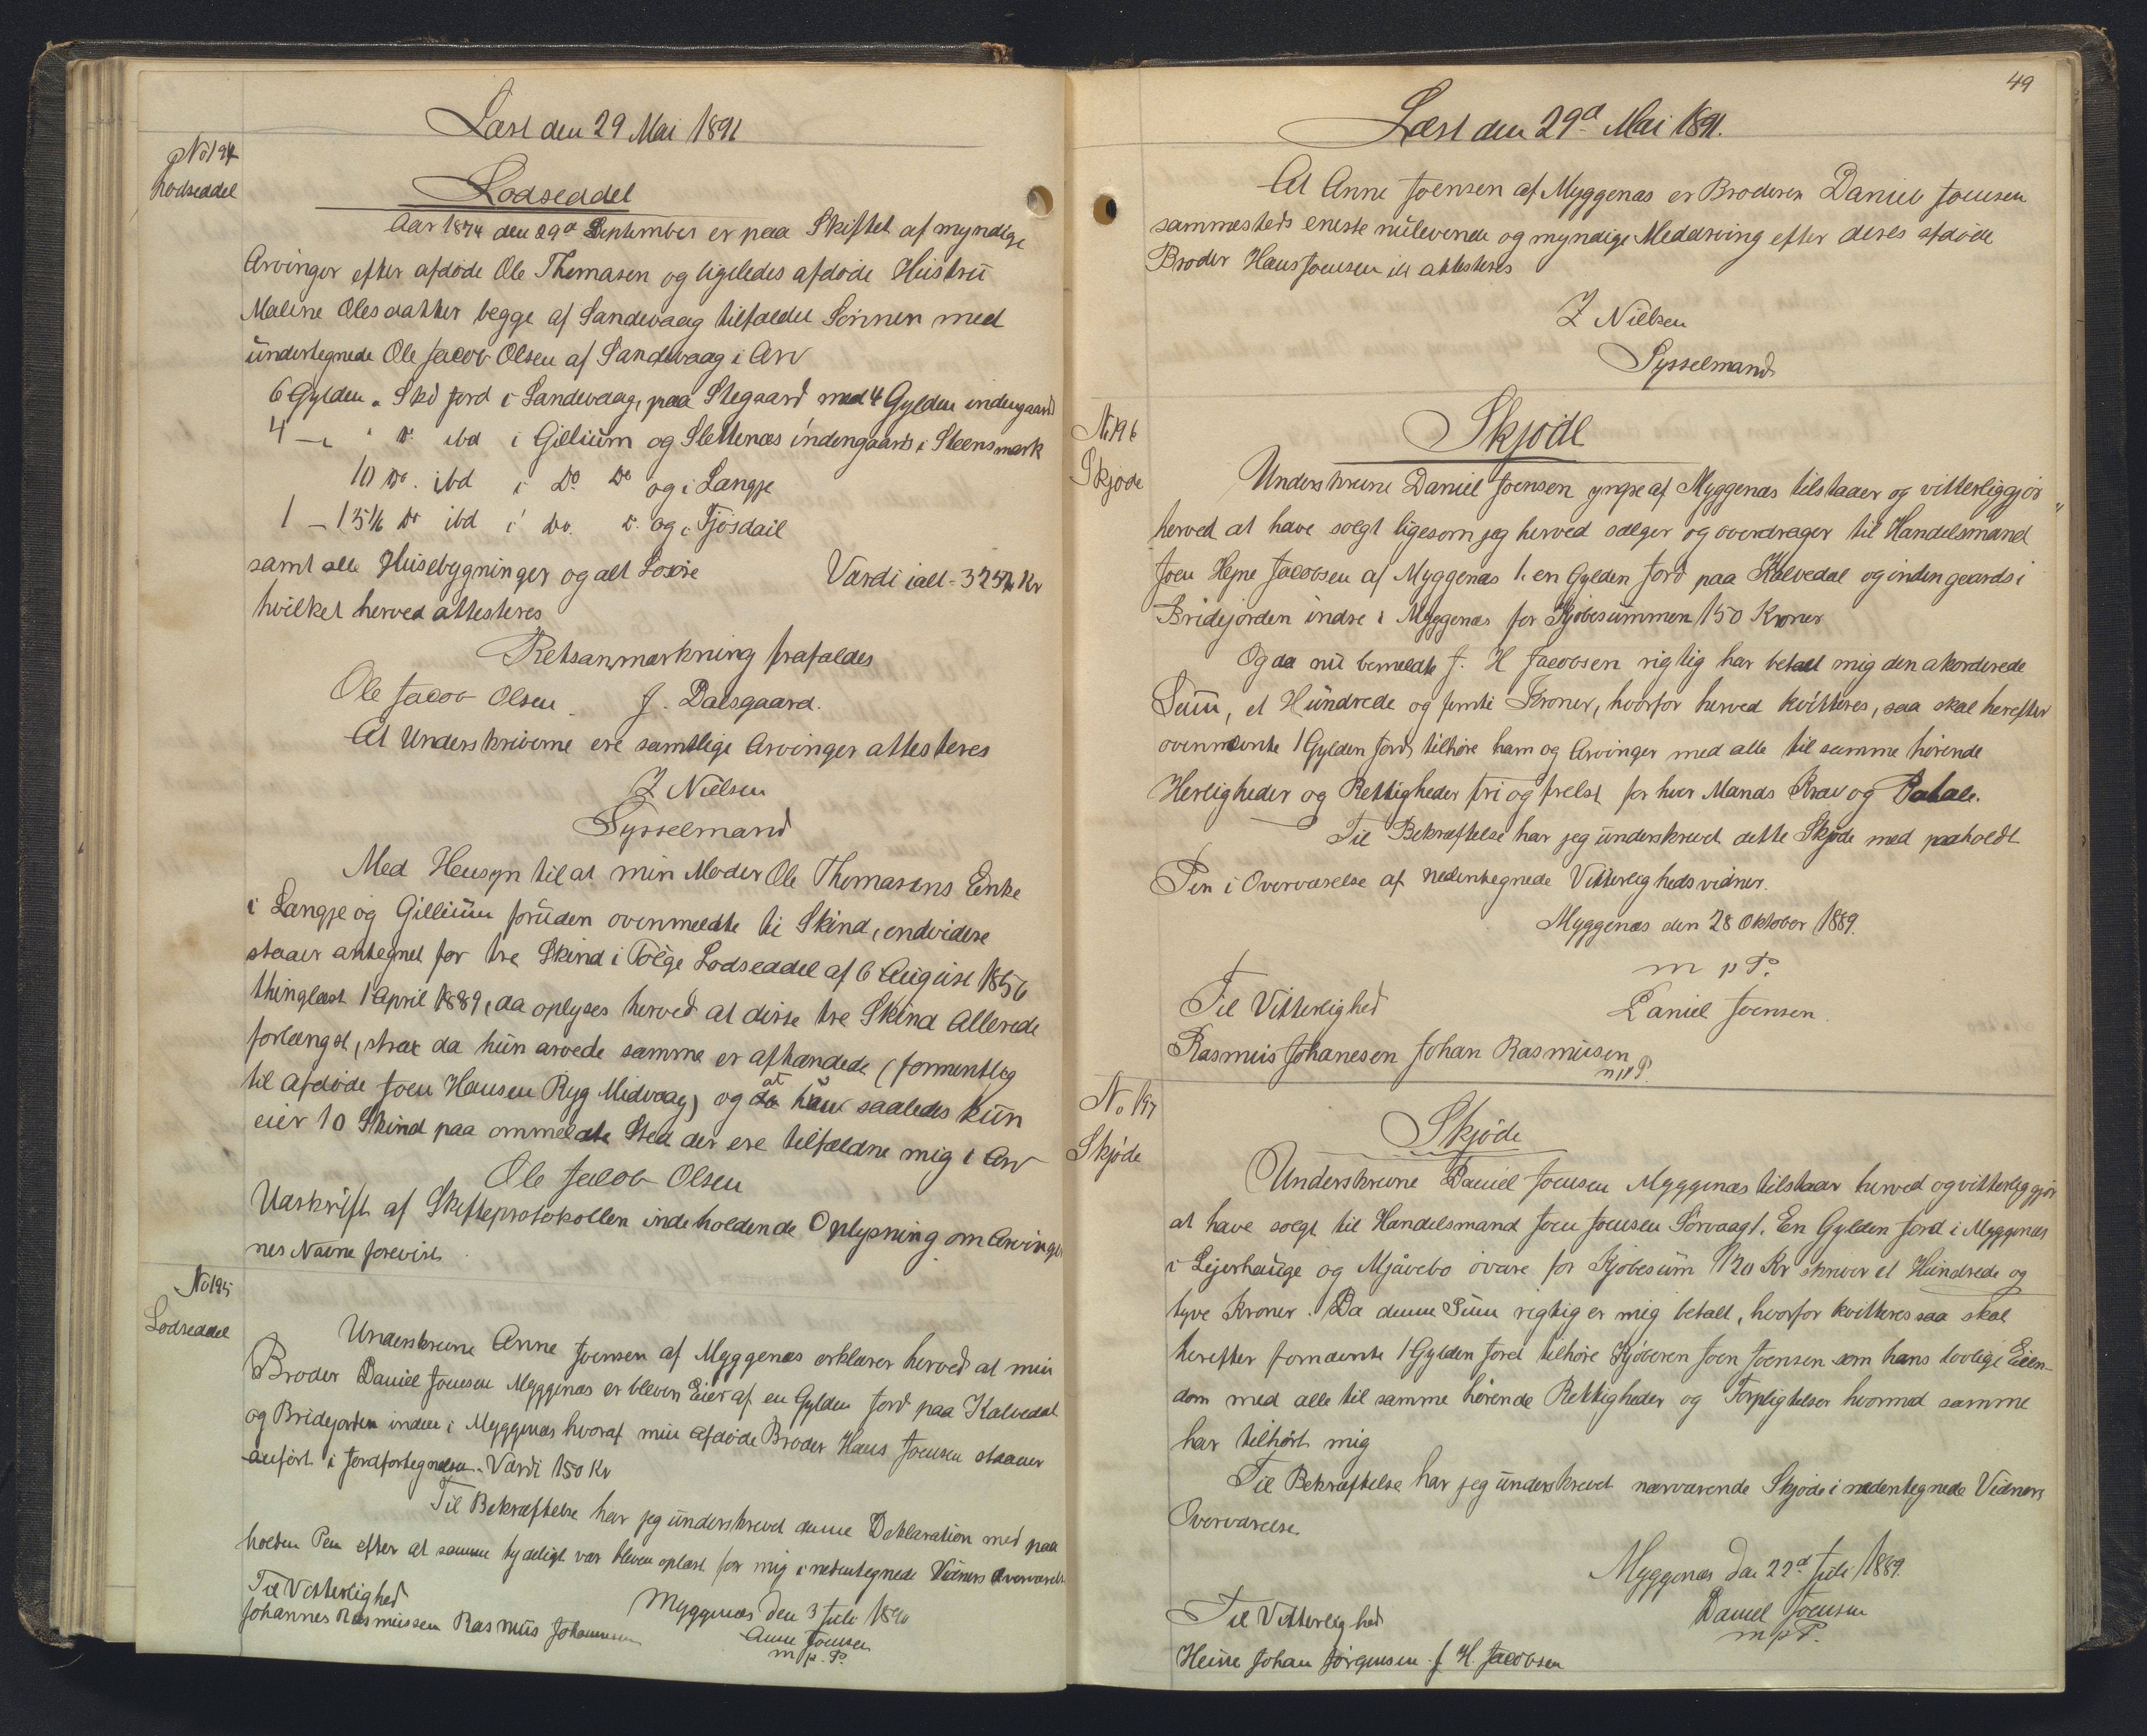 Læst den 29 Mai 1891
No 194
Lodseddel
Lodseddel
Aar 1874 den 29d September er paa Skiftet af myndige
Arvinger efter afdøde Ole Thomasen og ligeledes afdøde Hustru
Maline Olesdatter begge af Sandevaag tilfaldet Sønnen med
undertegnede Ole Jacob Olsen af Sandevaag i Arv
6 Gylden " Skd Jord i Sandevaag, paa Stegaard med 4 Gylden indengaards
4 — " Do ibd i Gillium og Slettenæs indengaards i Steensmark
10 Do. ibd i Do Do og i Langje
1 — 15 1/6 Do ibd i Do. Do. og i Tjøsdail
samt alle Husebygninger og alt Løsøre Værdi ialt - 3252 Kr
hvilket herved attesteres
Retsanmærkning frafaldes
Ole Jacob Olsen J. Dalsgaard.
At Underskriverne ere samtlige Arvinger attesteres
Z Nielsen
Sysselmand
Med Hensyn til at min Moder Ole Thomasens Enke
i Langje og Gillium foruden ovenmeldte ti Skind, endvidere
staaer antegnet for tre Skind i Følge Lodseddel af 6 August 1856
thinglæst 1 April 1889, da oplyses herved at disse tre Skind Allerede
forlængst, strax da hun arvede samme er afhændede (formentlig
til afdøde Joen Hansen Ryg Midvaag) og at hun saaledes kun
eier 10 Skind paa ommeldte Sted der ere tilfaldne mig i Arv
Ole Jacob Olsen
Udskrift af Skifteprotokollen indeholdende Oplysning om Arvinger
nes Navne forevist.
No 195
Lodseddel
Underskrevne Anne Joensen af Myggenæs erklærer herved at min
Broder Daniel Joensen Myggenæs er bleven Eier af en Gylden Jord paa Kalvedal
og Bridejorden indre i Myggenæs hvoraf min afdøde Broder Hans Joensen staaer
anført i Jordfortegnelsen. Værdi 150 Kr
Til Bekræftelse har jeg underskrevet denne Deklaration med paa
holden Pen efter at samme tydeligt var bleven oplæst for mig i nedentegnede Vidners Overværelse
Til Vitterlighed Myggenæs den 3 Juli 1890
Johannes Rasmussen Rasmus Johannesen Anne Joensen
m p. P.
49
Læst den 29d Mai 1891.
At Anne Joensen af Myggenæs er Broderen Daniel Joensen
sammesteds eneste nulevende og myndige Medarving efter deres afdøde
Broder Hans Joensen attesteres
Z Nielsen
Sysselmand
No 196
Skjøde
Skjøde
Underskrevne Daniel Joensen yngre af Myggenæs tilstaaer og vitterliggjør
herved at have solgt ligesom jeg herved sælger og overdrager til Handelsmand
Joen Hejne Jacobsen af Myggenæs 1. en Gylden Jord paa Kalvedal og indengaards i
Bridejorden indre i Myggenæs for Kjøbesummen 150 Kroner
Og da nu bemeldte J. H Jacobsen rigtig har betalt mig den akorderede
Sum, et Hundrede og femti Kroner, hvorfor herved kvitteres, saa skal herefter
ovennævnte 1 Gylden Jord tilhøre ham og Arvinger med alle til samme hørende
Herligheder og Rettigheder fri og frelst for hver Mands Krav og Patale.
Til Bekræftelse har jeg underskrevet dette Skjøde med paaholdt
Pen i Overværelse af nedentegnede Vitterlighedsvidner.
Myggenæs den 28 Oktober 1889.
m p P.
Til Vitterlighed Daniel Joensen.
Rasmus Johanesen Johan Rasmusen
m p P.
No 197
Skjøde
Skjøde
Underskrevne Daniel Joensen Myggenæs tilstaar herved og vitterliggjør
at have solgt til Handelsmand Joen Joensen Sørvaag 1. En Gylden Jord i Myggenæs
i Lejerhauge og Mjåvebø øvare for Kjøbesum 120 Kr skriver et Hundrede og
tyve Kroner. Da denne Sum rigtig er mig betalt, hvorfor kvitteres saa skal
herefter fornævnte 1 Gylden Jord tilhøre Kjøberen Joen Joensen som hans lovlige Eien-
dom med alle til samme hørende Rettigheder og Forpligtelser hvormed samme
har tilhørt mig
Til Bekræftelse har jeg underskrevet nærværende Skjøde i nedentegnede Vidners
Overværelse.
Myggenæs den 22d Juli 1889.
Til Vitterlighed Daniel Joensen
m p P.
Heine Johan Jørgensen. J. H. Jacobsen